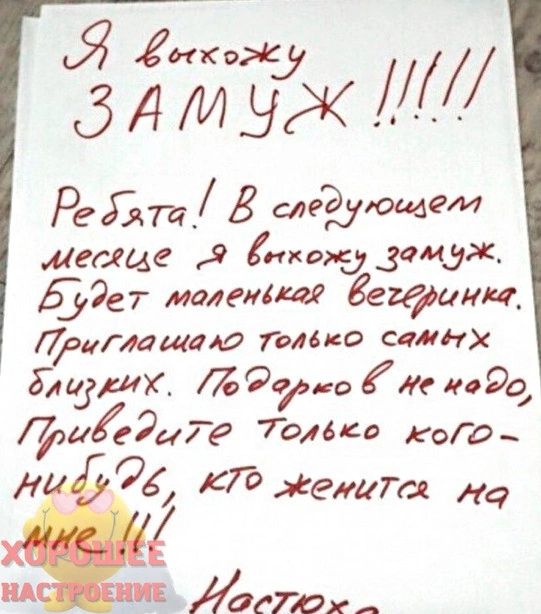 Я выхожу
ЗАМУЖ !!!!!
Ребята! В следующем
месяце я выхожу замуж.
Будет маленькая вечеринка.
Приглашаю только самых
близких. Подарков не надо,
Приведите только кого-
нибудь, кто женится на
мне!!!
ХОРОШЕЕ
НАСТРОЕНИЕ
Настюха